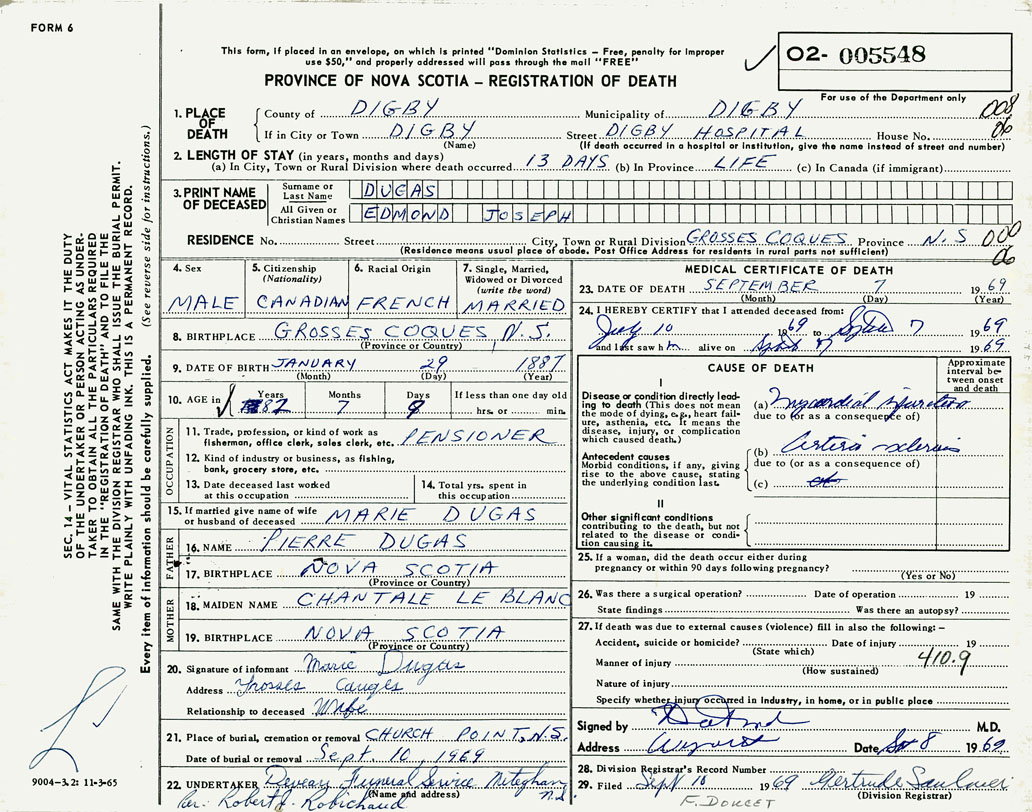 FORM 6
This form, if placed in an envelope, on which is printed "Dominion Statistics – Free, penalty for improper
use $50," and properly addressed will pass through the mail "FREE"
02- 005548
PROVINCE OF NOVA SCOTIA – REGISTRATION OF DEATH
For use of the Department only
1. PLACE OF DEATH
County of DIGBY Municipality of DIGBY 008
If in City or Town DIGBY Street DIGBY HOSPITAL House No. 06
(Name) (If death occurred in a hospital or institution, give the name instead of street and number)
2. LENGTH OF STAY (in years, months and days)
(a) In City, Town or Rural Division where death occurred. 13 DAYS (b) In Province LIFE (c) In Canada (if immigrant)
3. PRINT NAME OF DECEASED
Surname or Last Name DUGAS
All Given or Christian Names EDMOND JOSEPH
RESIDENCE No. Street City, Town or Rural Division GROSSES COQUES Province N.S 000
(Residence means usual place of abode. Post Office Address for residents in rural parts not sufficient) 06
4. Sex MALE
5. Citizenship (Nationality) CANADIAN
6. Racial Origin FRENCH
7. Single, Married, Widowed or Divorced (write the word) MARRIED
8. BIRTHPLACE GROSSES COQUES, N.S.
(Province or Country)
9. DATE OF BIRTH JANUARY 29 1887
(Month) (Day) (Year)
10. AGE in Years Months Days If less than one day old
82 7 hrs. or min.
OCCUPATION
11. Trade, profession, or kind of work as
fisherman, office clerk, sales clerk, etc. PENSIONER
12. Kind of industry or business, as fishing,
bank, grocery store, etc.
13. Date deceased last worked
at this occupation
14. Total yrs. spent in
this occupation
15. If married give name of wife
or husband of deceased MARIE DUGAS
FATHER
16. NAME PIERRE DUGAS
17. BIRTHPLACE NOVA SCOTIA
(Province or Country)
MOTHER
18. MAIDEN NAME CHANTALE LE BLANC
19. BIRTHPLACE NOVA SCOTIA
(Province or Country)
20. Signature of informant Marie Dugas
Address Grosses Coques
Relationship to deceased Wife
21. Place of burial, cremation or removal CHURCH POINT, N.S.
Date of burial or removal Sept. 10, 1969
22. UNDERTAKER Funeral Service Meteghan N.S.
(Name and address)
Per: Robert J. Robichaud
MEDICAL CERTIFICATE OF DEATH
23. DATE OF DEATH SEPTEMBER 7 1969
(Month) (Day) (Year)
24. I HEREBY CERTIFY that I attended deceased from:
July 10 1969 to Sept 7 1969
and last saw him alive on Sept 7 1969
CAUSE OF DEATH
Approximate interval between onset and death
I
Disease or condition directly leading to death (This does not
mean the mode of dying, e.g., heart failure, asthenia, etc. It means the
disease, injury, or complication
which caused death.)
(a) Myocardial infarction
due to (or as a consequence of)
Antecedent causes
Morbid conditions, if any, giving
rise to the above cause, stating
the underlying condition last.
(b) Arterio sclerosis
due to (or as a consequence of)
(c)
II
Other significant conditions
contributing to the death, but not
related to the disease or condition causing it.
25. If a woman, did the death occur either during
pregnancy or within 90 days following pregnancy?
(Yes or No)
26. Was there a surgical operation? Date of operation 19
State findings Was there an autopsy?
27. If death was due to external causes (violence) fill in also the following: –
Accident, suicide or homicide? Date of injury 19
(State which)
Manner of injury 410.9
(How sustained)
Nature of injury
Specify whether injury occurred in industry, in home, or in public place
Signed by M.D.
Address Date Sept 8 1969
28. Division Registrar's Record Number
29. Filed Sept 10 1969 Gertrude Saulnier
(Division Registrar)
F. DOUCET
SEC. 14 – VITAL STATISTICS ACT MAKES IT THE DUTY
OF THE UNDERTAKER OR PERSON ACTING AS UNDER-
TAKER TO OBTAIN ALL THE PARTICULARS REQUIRED
IN THE "REGISTRATION OF DEATH" AND TO FILE THE
SAME WITH THE DIVISION REGISTRAR WHO SHALL ISSUE THE BURIAL PERMIT.
WRITE PLAINLY WITH UNFADING INK. THIS IS A PERMANENT RECORD.
Every item of information should be carefully supplied. (See reverse side for instructions.)
9004–3.2: 11-3-65